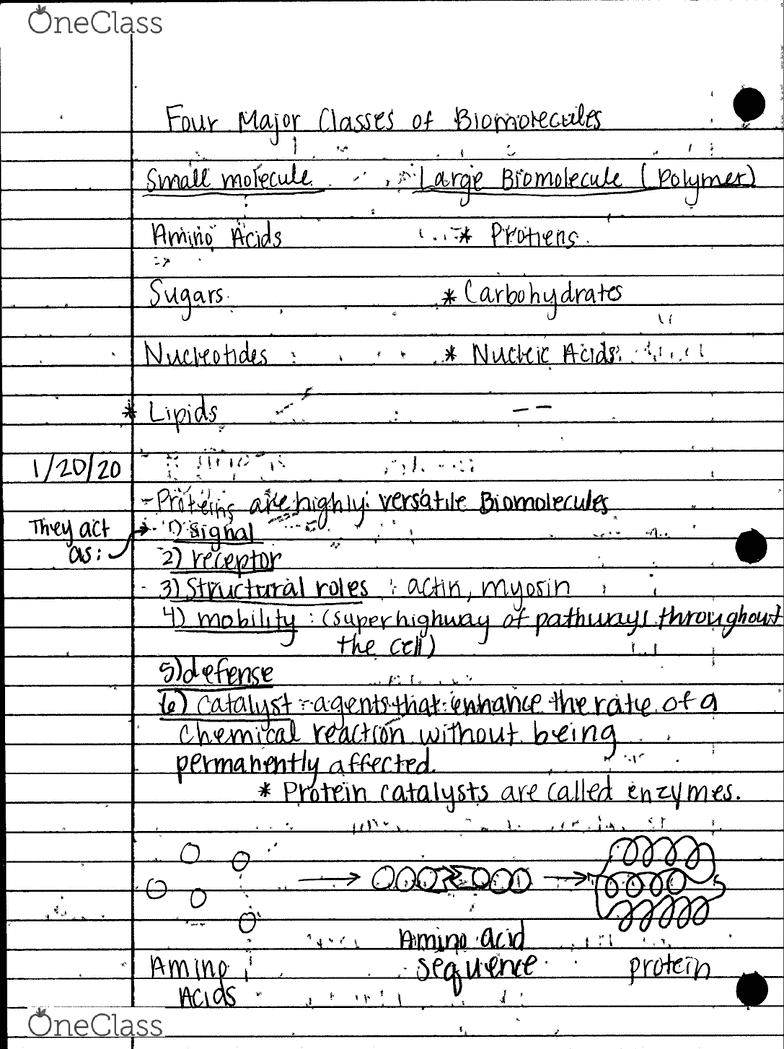 OneClass
Four Major Classes of Biomolecules
Small molecule Large Biomolecule (Polymer)
Amino Acids * Protiens
Sugars * Carbohydrates
Nucleotides * Nucleic Acids
* Lipids — —
1/20/20
- Proteins are highly versatile Biomolecules
They act as: → 1) signal
2) receptor
3) Structural roles : actin, myosin
4) mobility : (superhighway of pathways throughout
the cell)
5) defense
6) catalyst - agents that enhance the rate of a
chemical reaction without being
permanently affected.
* Protein catalysts are called enzymes.
Amino acid
sequence
Amino
Acids
protein
OneClass